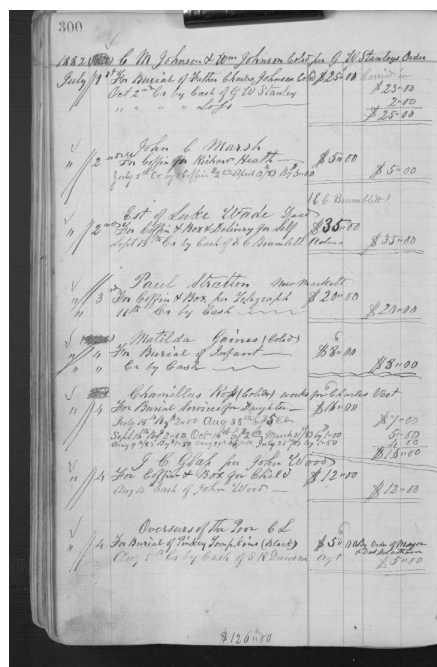 300
1882 C M Johnson & Wm Johnson Cold per G W Stanleys Order
July 1st For Burial of Father Charles Johnson Cold $25"00
Oct 2nd Cr by Cash of G W Stanley $23"00
" " " " Loss 2"00
$25"00
John C Marsh
" 2 For Coffin for Richard Heath $5"00
July 5th Cr by $5"00
(E C Bramblitt)
Est of Luke Wade Decd
" 2 For Coffin & Box & Delivery for Self $35"00
Sept 18th Cr by Cash of E C Bramlett $35"00
Paul Stratton New Markett
" 3rd For Coffin & Box per Telegraph $20"00
11th Cr by Cash $20"00
Matilda Goins (Cold)
" 4 For Burial of Infant $8"00
" " Cr by Cash $8"00
Chanillus Ross (Cold) works for Charles Vest
" 4 For Burial Services for Daughter $16"00
July 15th By 2"00 Aug $7"00
Sept 16th By 2"00 Oct 14th By 2 March 3rd 83 by 1"00
$16"00
J C for John Wood
" 4 For Coffin & Box for Child $12"00
Aug 12 Cash of John Wood $12"00
Overseers of the Poor C L
" 4 For Burial of Pinkey Tompkins (black) $5"00 By Order of Mayor
Aug 5th Cr by Cash of S R Dawson Agt $5"00
$126"00